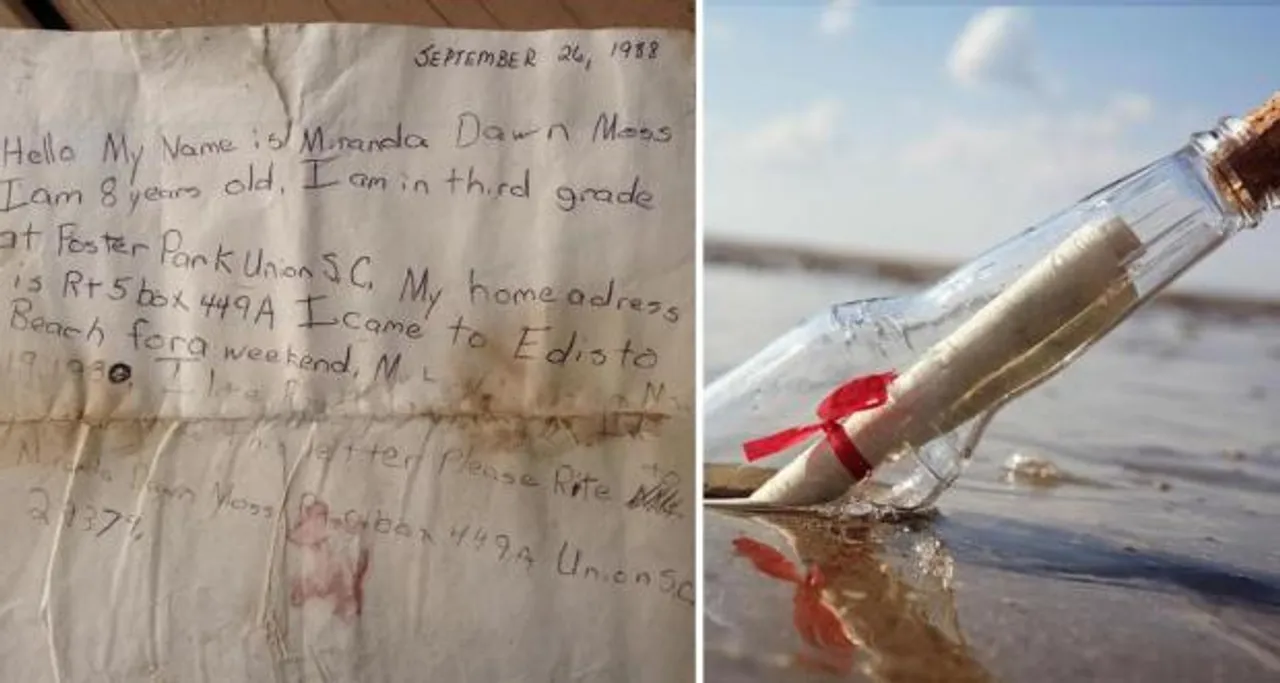 SEPTEMBER 26, 1988
Hello My Name is Miranda Dawn Moss
I am 8 years old. I am in third grade
at Foster Park Union S.C. My home adress
is Rt 5 box 449A I came to Edisto
Beach for a weekend, M
letter Please Rite to
Dawn Moss box 449A Union S.C.